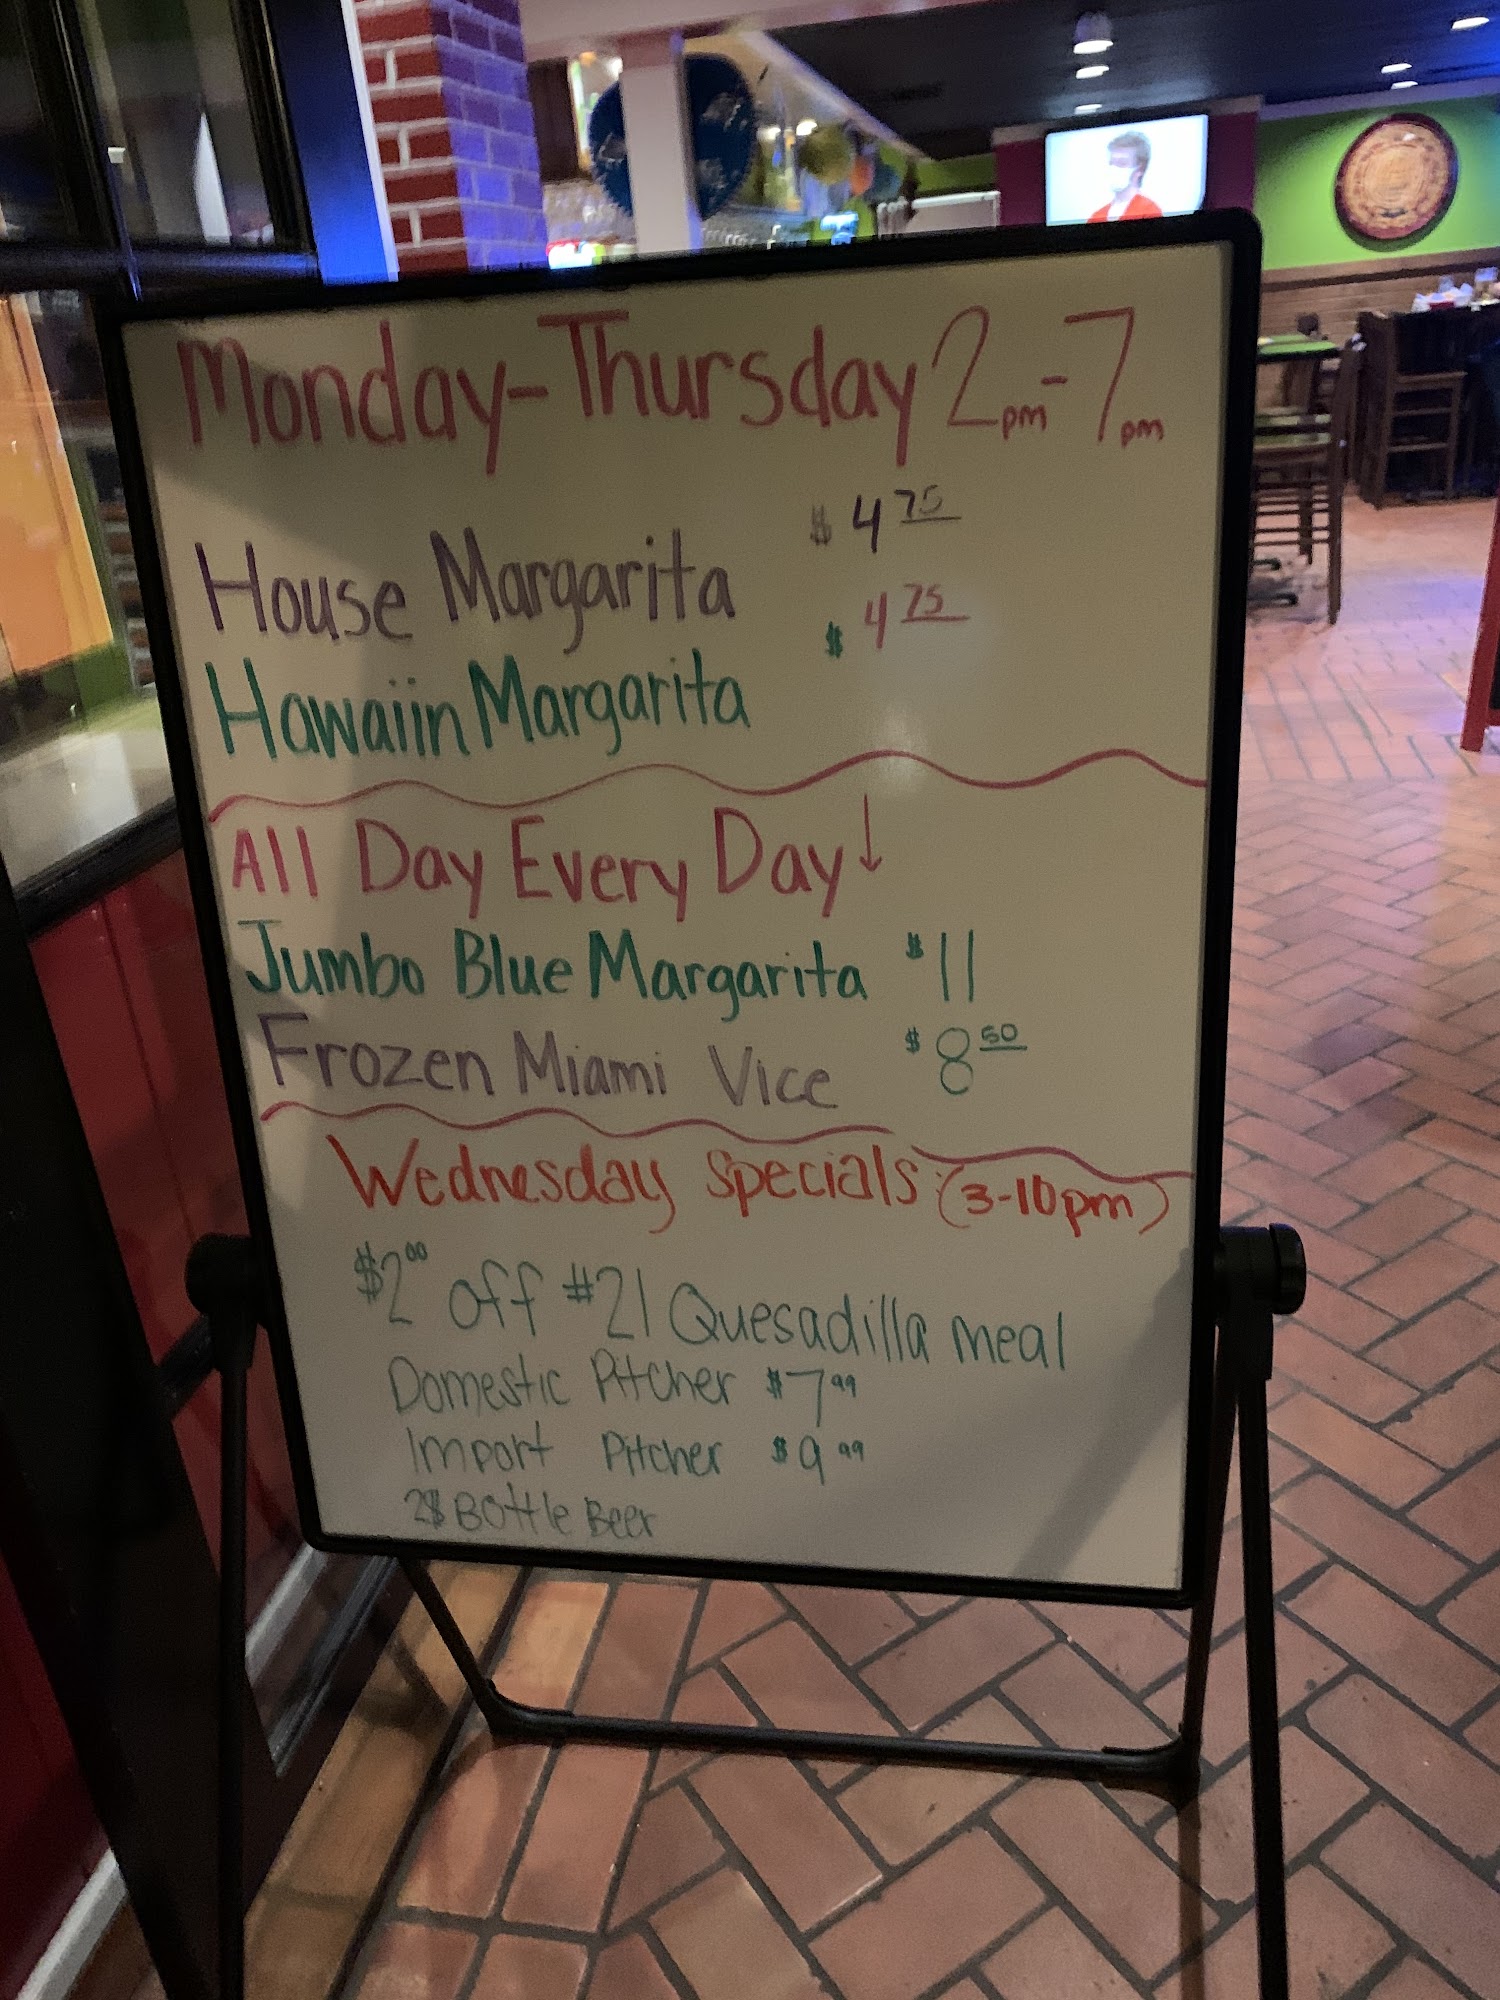 Monday-Thursday 2pm-7pm
House Margarita $4.75
Hawaiin Margarita $4.75
All Day Every Day↓
Jumbo Blue Margarita $11
Frozen Miami Vice $8.50
Wednesday Specials: (3-10pm)
$2.00 off #21 Quesadilla meal
Domestic Pitcher $7.99
Import Pitcher $9.99
2$ Bottle Beer